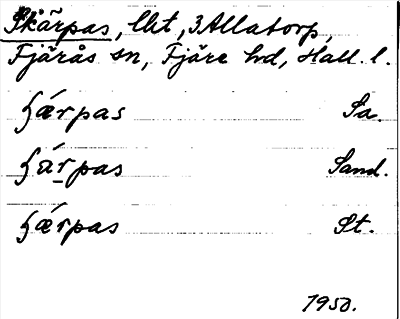 Skärpas, lht, 3 Allatorp,
Fjärås sn, Fjäre hd, Hall. l.
ʃǽrpas Sa.
ʃä́rpas Sand.
ʃǽrpas St.
1950.